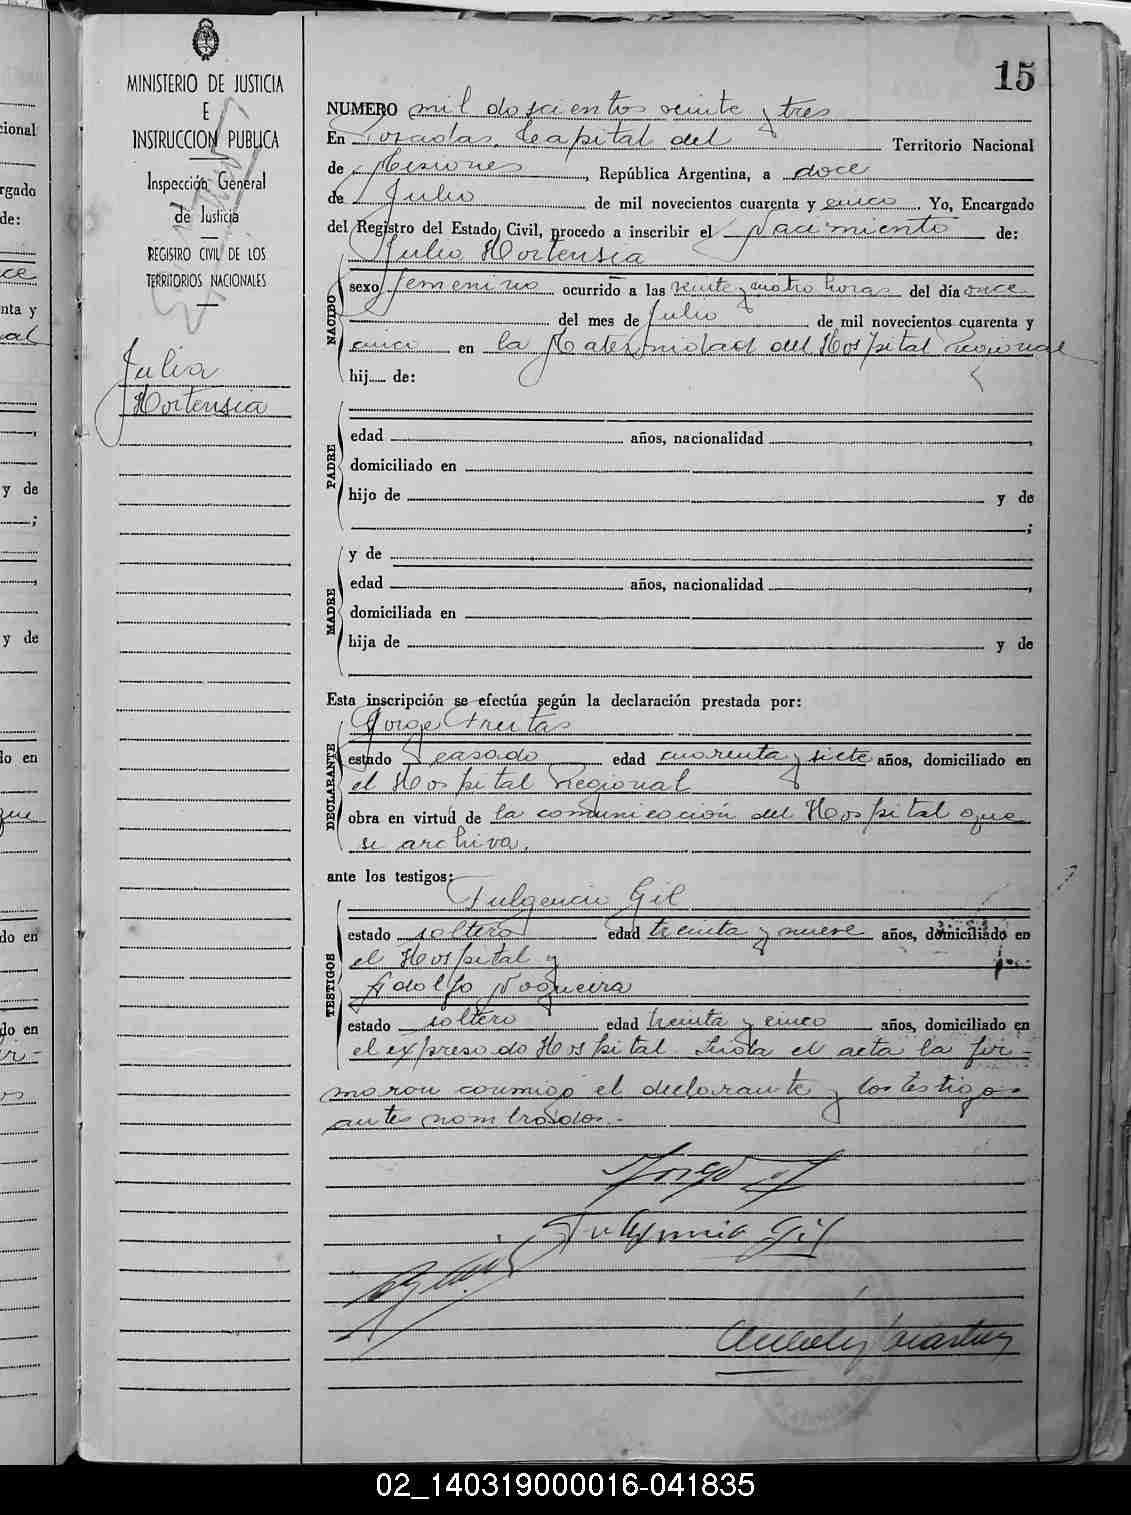 MINISTERIO DE JUSTICIA
E
INSTRUCCION PUBLICA
Inspección General
de Justicia
REGISTRO CIVIL DE LOS
TERRITORIOS NACIONALES
Julia
Hortensia
15
NUMERO mil doscientos veinte y tres
En Posadas, Capital del Territorio Nacional
de Misiones, República Argentina, a doce
de Julio de mil novecientos cuarenta y cinco. Yo, Encargado
del Registro del Estado Civil, procedo a inscribir el Nacimiento de:
Julia Hortensia
NACIDO
sexo femenino ocurrido a las veinte y cuatro horas del día once
del mes de Julio de mil novecientos cuarenta y
cinco en la Maternidad del Hospital Regional
hij de:
PADRE
edad años, nacionalidad ,
domiciliado en
hijo de y de
;
MADRE
y de
edad años, nacionalidad ,
domiciliada en
hija de y de
Esta inscripción se efectúa según la declaración prestada por:
DECLARANTE
Jorge Freitas
estado casado edad cuarenta y siete años, domiciliado en
el Hospital Regional
obra en virtud de la comunicación del Hospital que
se archiva.
ante los testigos:
TESTIGOS
Fulgencio Gil
estado soltero edad treinta y nueve años, domiciliado en
el Hospital y
Adolfo Nogueira
estado soltero edad treinta y cinco años, domiciliado en
el expresado Hospital. Leida el acta la fir-
maron conmigo el declarante y los testigos
antes nombrados.-
Fulgencio Gil
02_140319000016-041835